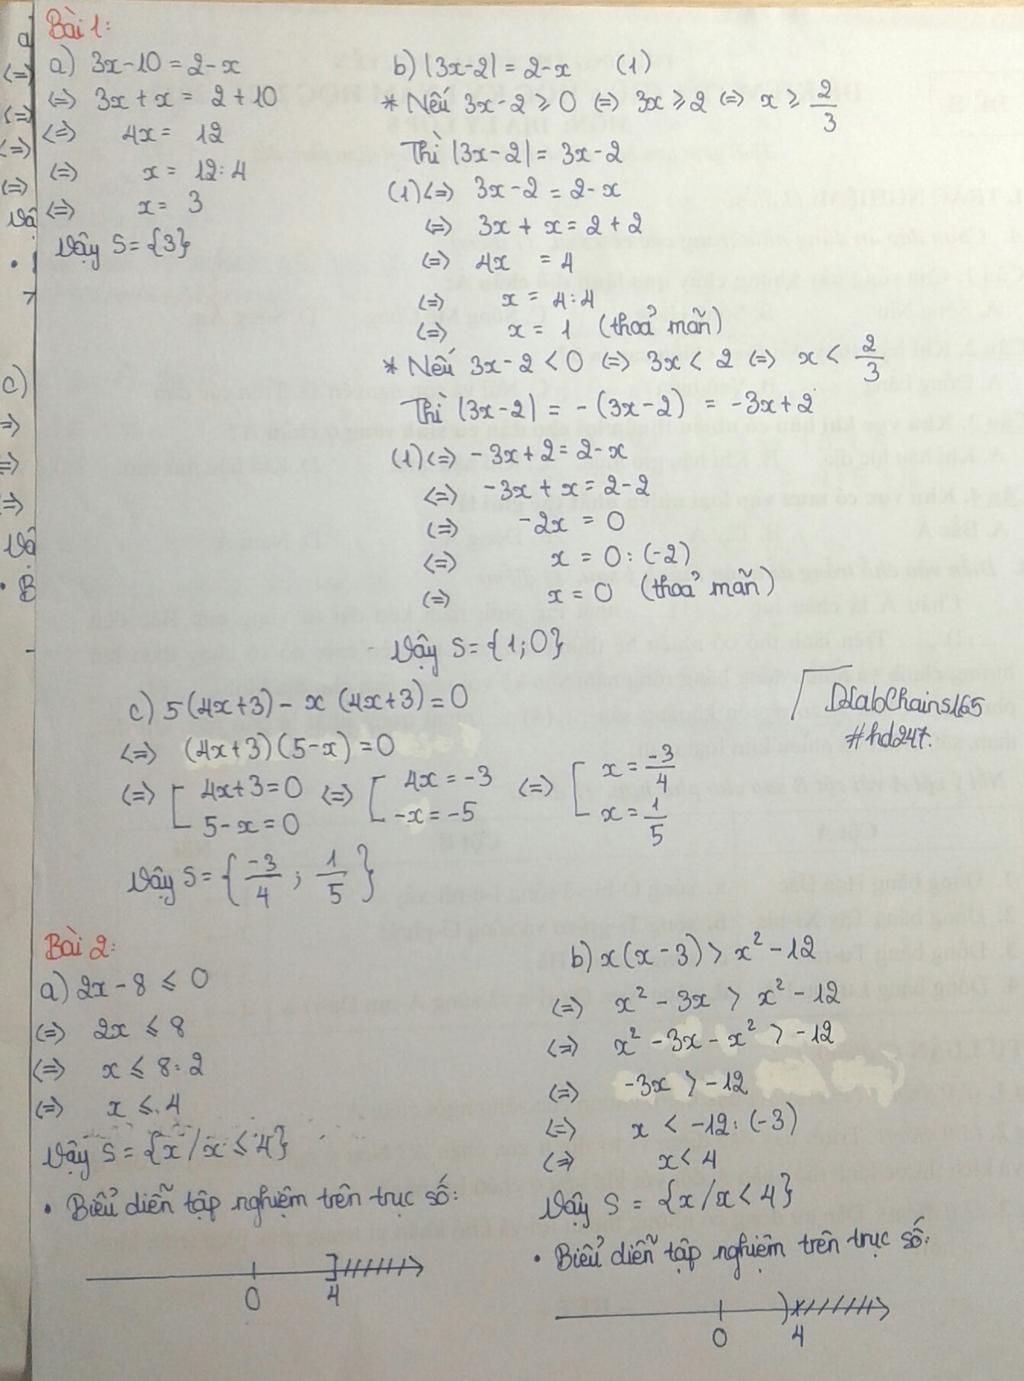 Bài 1:
a) 3x-10 = 2-x
<=> 3x+x = 2+10
<=> 4x = 12
<=> x = 12:4
<=> x = 3
Vậy S = {3}
b) |3x-2| = 2-x (1)
* Nếu 3x-2 ≥ 0 <=> 3x ≥ 2 <=> x ≥ 2/3
Thì |3x-2| = 3x-2
(1) <=> 3x-2 = 2-x
<=> 3x + x = 2+2
<=> 4x = 4
<=> x = 4:4
<=> x = 1 (thoả mãn)
* Nếu 3x-2 < 0 <=> 3x < 2 <=> x < 2/3
Thì |3x-2| = -(3x-2) = -3x+2
(1) <=> -3x+2 = 2-x
<=> -3x + x = 2-2
<=> -2x = 0
<=> x = 0:(-2)
<=> x = 0 (thoả mãn)
Vậy S = {1;0}
c) 5(4x+3) - x(4x+3) = 0
<=> (4x+3)(5-x) = 0
<=> [ 4x+3=0 <=> [ 4x = -3 <=> [ x = -3/4
5-x = 0 -x = -5 x = 1/5
Vậy S = { -3/4 ; 1/5 }
#hd247.
Bài 2:
a) 2x - 8 ≤ 0
<=> 2x ≤ 8
<=> x ≤ 8:2
<=> x ≤ 4
Vậy S = {x/x ≤ 4}
• Biểu diễn tập nghiệm trên trục số:
0 4
b) x(x-3) > x² - 12
<=> x² - 3x > x² - 12
<=> x² - 3x - x² > -12
<=> -3x > -12
<=> x < -12:(-3)
<=> x < 4
Vậy S = {x/x < 4}
• Biểu diễn tập nghiệm trên trục số:
0 4